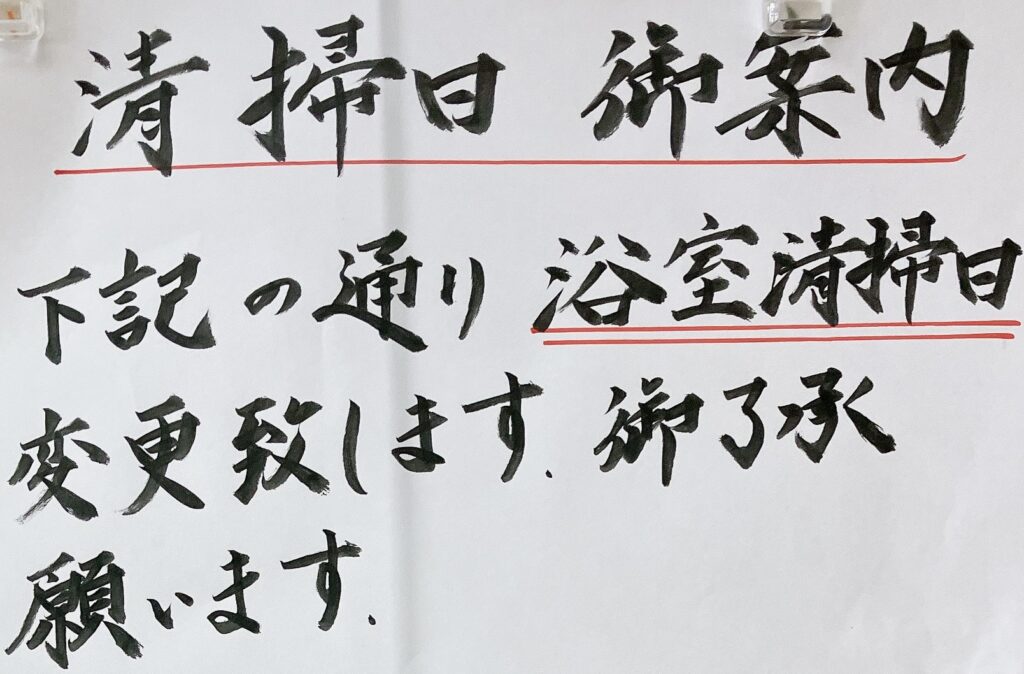 清掃日 御案内
下記の通り 浴室清掃日
変更致します. 御了承
願います.